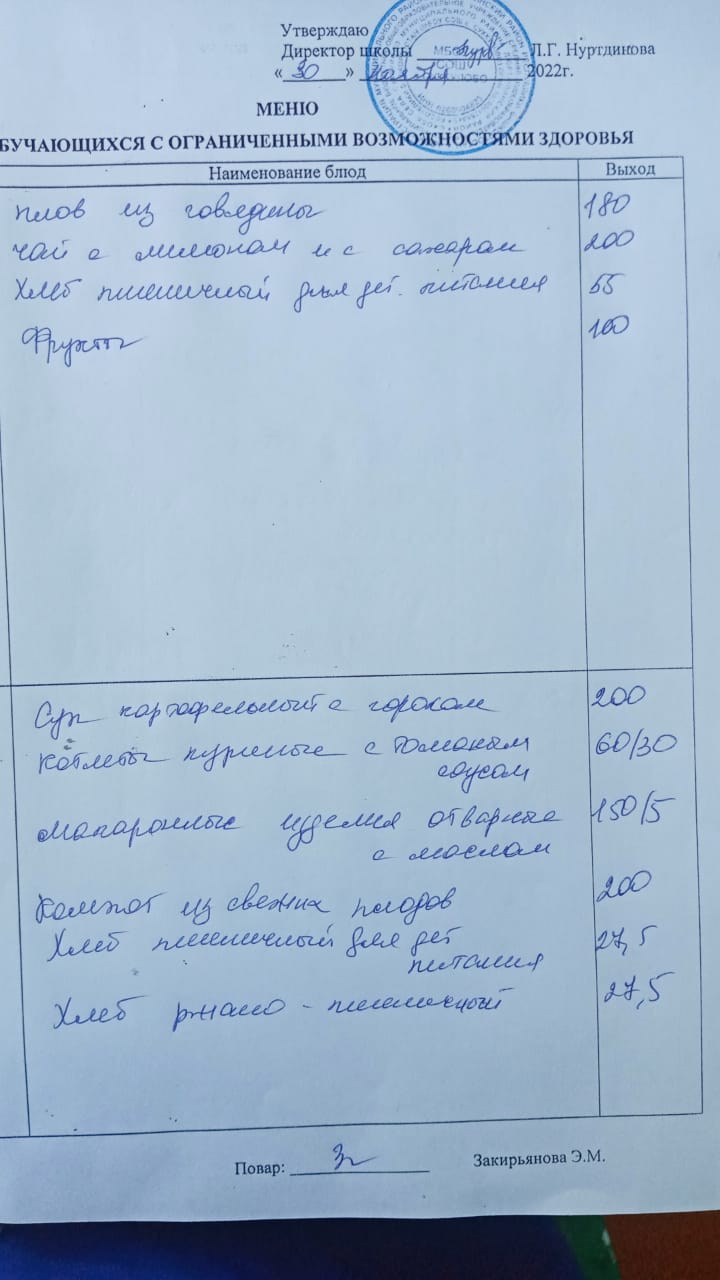 Утверждаю
Директор школы Л.Г. Нуртдинова
« 30 » ноября 2022г.
МЕНЮ
БУЧАЮЩИХСЯ С ОГРАНИЧЕННЫМИ ВОЗМОЖНОСТЯМИ ЗДОРОВЬЯ
Наименование блюд Выход
плов из говядины 180
чай с лимоном и с сахаром 200
Хлеб пшеничный для дет. питания 55
Фрукты 100
Суп картофельный с горохом 200
Котлеты куриные с томатным 60/30
соусом
Макаронные изделия отварные 150/5
с маслом
Компот из свежих плодов 200
Хлеб пшеничный для дет 27,5
питания
Хлеб ржано - пшеничный 27,5
Повар: Закирьянова Э.М.